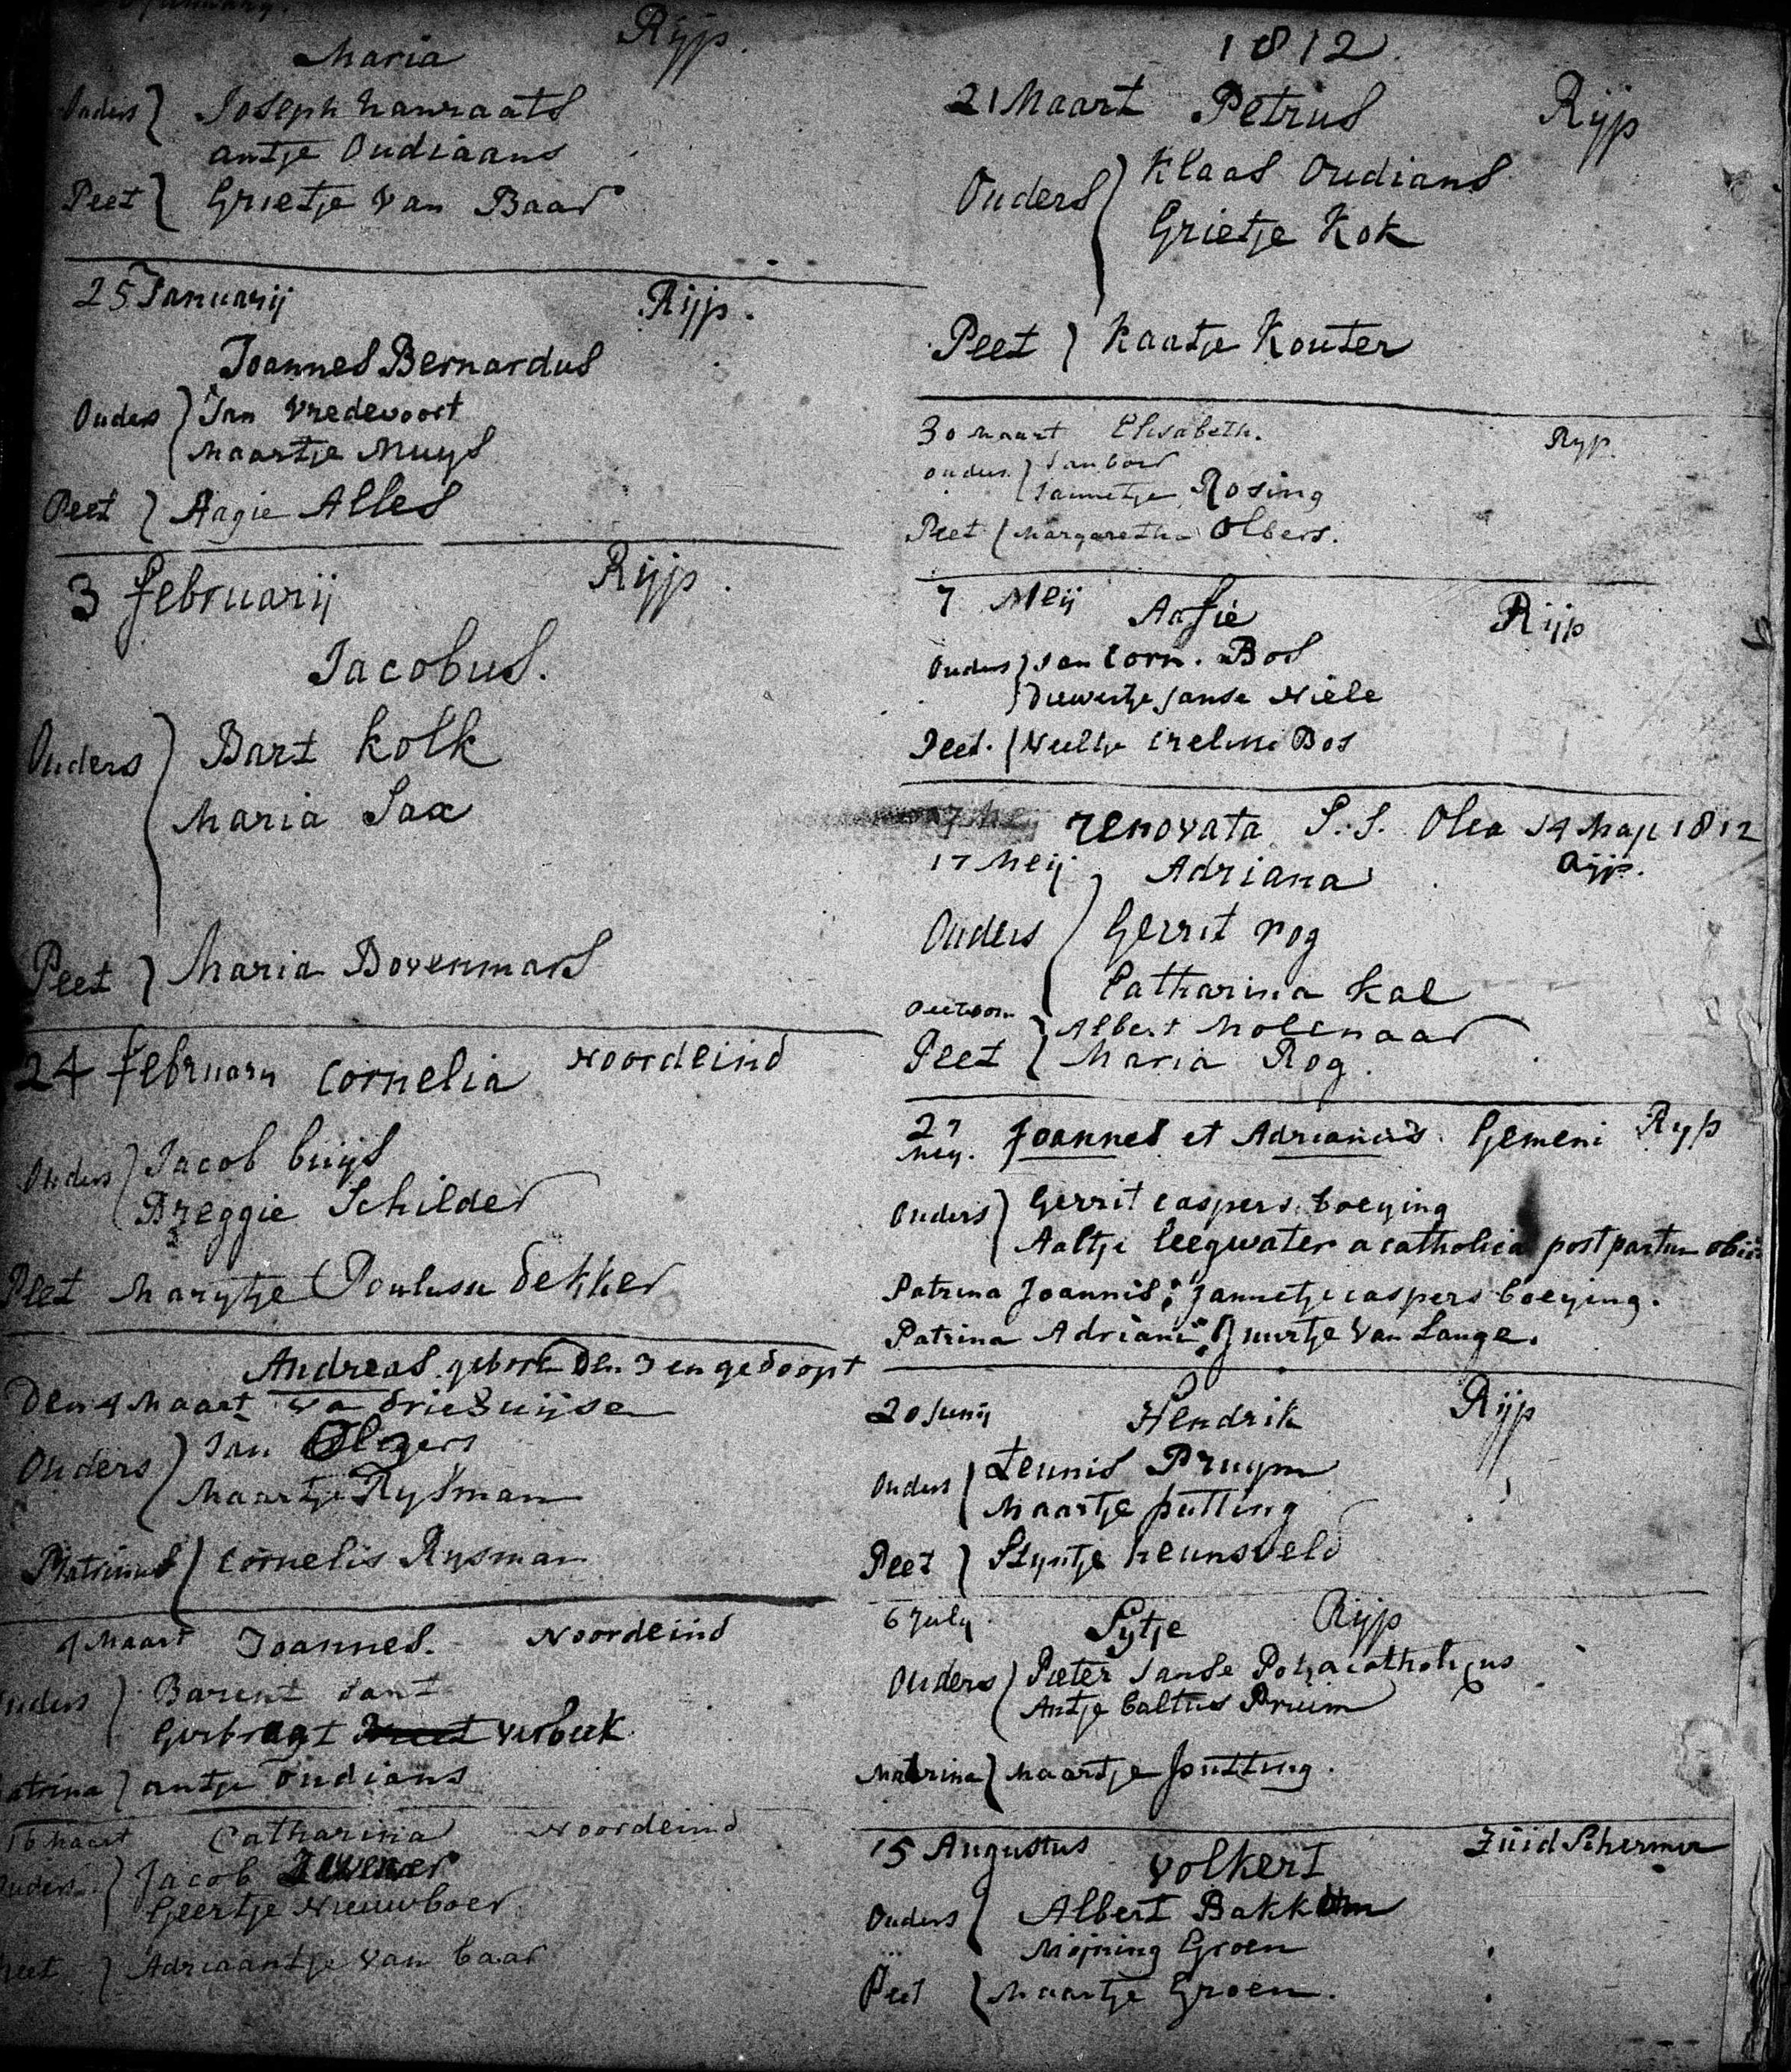 Maria Rijp.
Ouders Joseph hanraats
antje Oudiaans
Peet Grietje van Baar
25 Januarij Rijp.
Joannes Bernardus
Ouders Jan Vredevoort
Maartje Muys
Peet Aagie Alles
3 februarij Rijp.
Jacobus.
Ouders Bart Kolk
Maria Sax
Peet Maria Bovenmars
24 february Cornelia Noordeind
Ouders Jacob buijs
Breggie Schilder
Peet Marijtje Poulusse dekker
Andreas geboren den 3 en gedoopt
Den 4 Maart va driehuijsen
Ouders Jan Olgers
Maartje Rysman
Patrinus Cornelis Rysman
4 Maart Joannes. Noordeind
Ouders Barent
Gerbragt verbeek
Matrina antje oudians
16 Maart Catharina Noordeind
Ouders Jacob
Geertje Nieuwboer
Peet Adriaantje van baar
1812.
21 Maart Petrus Rijp
Ouders Klaas Oudians
Grietje Kok
Peet Kaatje Kouter
30 Maart Elisabeth. Ryp.
ouders Jan boer
Jannetje Rosing
Peet Margaretha Olbers.
7 Meij Aafie Rijp
Ouders Jan Corn. Bos
Diewertje Janse Niele
Peet. Neeltje Bos
renovata S.S. Olea 14 Maji 1812
17 Meij Adriana Rijp.
Ouders Gerrit rog
Catharina Kal
Peetoom Albert Molenaar
Peet Maria Rog.
27 Mey. Joannes et Adrianus. Gemeni Ryp
Ouders Gerrit caspers boeying
Aaltje leegwater acatholica post partum obiit
Patrina Joannis: Jannetje caspers boeying.
Patrina Adriani: Guurtje van Lange.
20 Junij Hendrik Rijp
Ouders Teunis Pruym
Maartje putting
Peet Styntje heunsveld
6 July Sytje Rijp
Ouders Pieter Janse Pot acatholicus
Antje baltus Pruim
Matrina Maartje putting.
15 Augustus volkert Zuid Schermer
Ouders Albert Bakkum
Mejning Groen
Peet Maartje Groen.